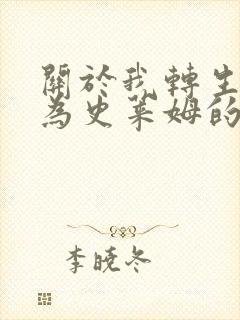 關於我轉生
為史萊姆的
李曉冬